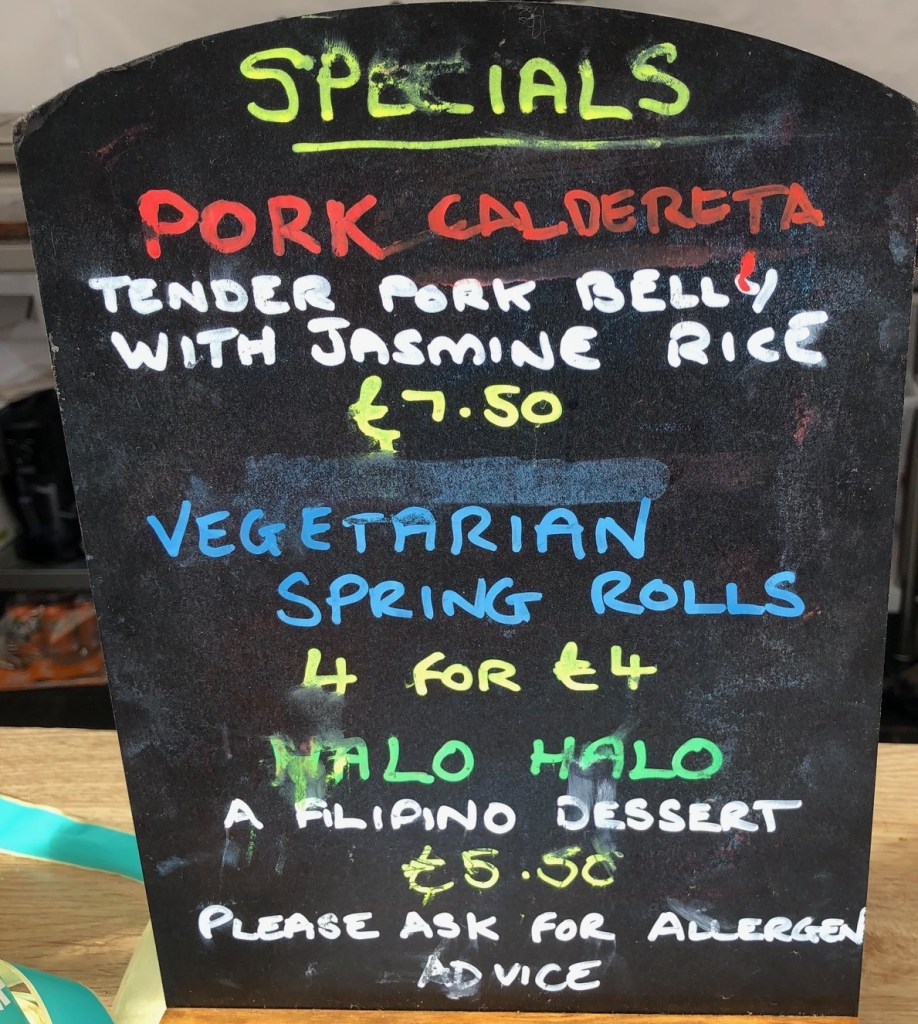 SPECIALS
PORK CALDERETA
TENDER PORK BELLY
WITH JASMINE RICE
£7.50
VEGETARIAN
SPRING ROLLS
4 FOR £4
HALO HALO
A FILIPINO DESSERT
£5.50
PLEASE ASK FOR ALLERGEN
ADVICE